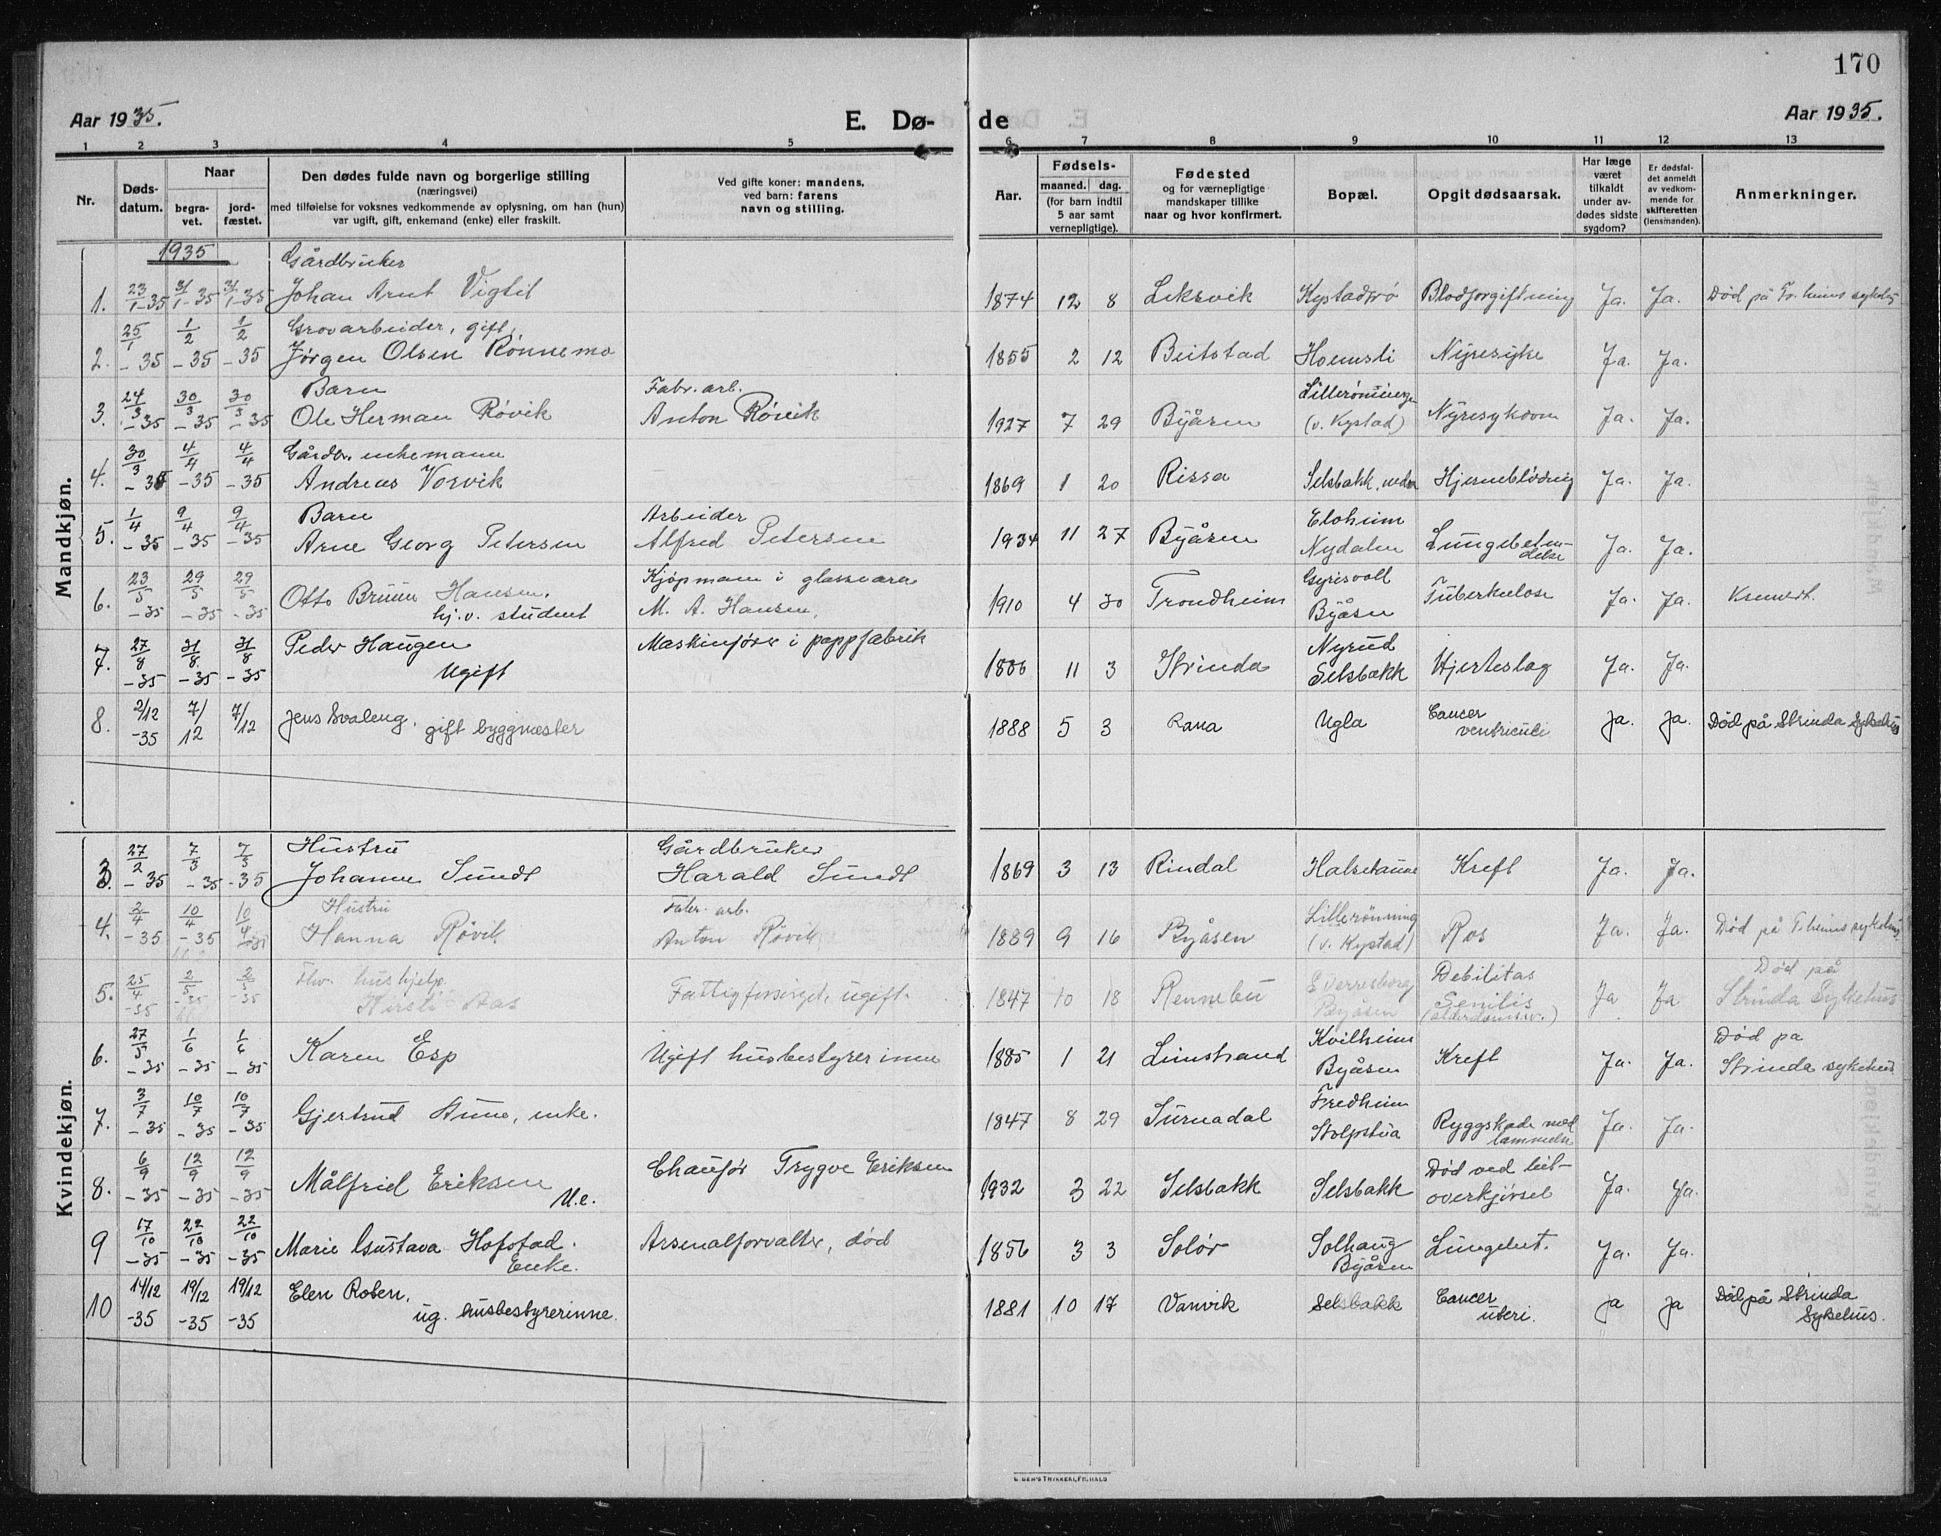 170
Aar 1935.
E. Dø-
de
Aar 1935.
1 2 3 4 5 6 7 8 9 10 11 12 13
Nr.
Døds-
datum.
Naar
begra-
vet.
jord-
fæstet.
Den dødes fulde navn og borgerlige stilling
(næringsvei)
med tilføielse for voksnes vedkommende av oplysning, om han (hun)
var ugift, gift, enkemand (enke) eller fraskilt.
Ved gifte koner: mandens,
ved barn: farens
navn og stilling.
Aar.
Fødsels-
maaned. dag.
(for barn indtil
5 aar samt
vernepligtige).
Fødested
og for værnepligtige
mandskaper tillike
naar og hvor konfirmert.
Bopæl.
Opgit dødsaarsak.
Har læge
været
tilkaldt
under av-
dødes sidste
sygdom?
Er dødsfal-
det anmeldt
av vedkom-
mende for
skifteretten
(lensmanden).
Anmerkninger.
Mandkjøn.
1935
Gårdbruker
1. 23/1-35 31/1-35 31/1-35 Johan Arnt Vigtil 1874 12 8 Leksvik Kystadtrø Blodforgiftning Ja. Ja. Død på Tr.heims sykehus
Grovarbeider, gift,
2. 25/1-35 1/2-35 1/2-35 Jørgen Olsen Rønnemo 1855 2 12 Beitstad Hoemsli Nyresyke Ja. Ja.
Barn Fabr. arb. Lillerønningen
3. 24/3-35 30/3-35 30/3-35 Ole Herman Røvik Anton Røvik 1927 7 29 Byåsen (v. Kystad) Nyresykdom Ja. Ja.
Gårdbr. enkemann
4. 30/3-35 4/4-35 4/4-35 Andreas Vorvik 1869 1 20 Rissa Selsbakk, nedre Hjerneblødning Ja. Ja.
Barn Arbeider Eloheim
5. 1/4-35 9/4-35 9/4-35 Arne Georg Petersen Alfred Petersen 1934 11 27 Byåsen Nydalen Lungebeten-
delse Ja. Ja.
Kjøpmann i glassvarer Gyrisvoll
6. 23/5-35 29/5-35 29/5-35 Otto Bruun Hansen, M. A. Hansen, 1910 4 30 Trondheim Byåsen Tuberkulose Ja. Ja. Kremert.
hj.v. student
7. 27/8-35 31/8-35 31/8-35 Peder Haugen Maskinfører i pappfabrik 1886 11 3 Strinda Nyrud
Ugift Selsbakk Hjerteslag Ja. Ja.
8. 2/12-35 7/12 7/12 Jens Svaleng. gift byggmester 1888 5 3 Rana Ugla Cancer
ventriculi Ja. Ja. Død på Strinda Sykehus
Kvindekjøn.
Hustru Gårdbruker
3. 27/2-35 7/3-35 7/3-35 Johanne Sundt Harald Sundt 1869 3 13 Rindal Halsetaune Kreft Ja. Ja.
Hustru Fabr. arb. Lillerønning
4. 2/4-35 10/4-35 10/4-35 Hanna Røvik Anton Røvik 1889 9 16 Byåsen (v. Kystad) Ros Ja. Ja. Død på T.heims sykehus
Fhv. hushjelp Debilitas Død på
5. 25/4-35 2/5-35 2/5-35 Kirsti Aas Fattigforsørget, ugift. 1847 10 18 Rennebu E. Verresborg
Byåsen Senilis
(alderdomssv.) Ja Ja Strinda Sykehus
6. 27/5-35 1/6-35 1/6-35 Karen Esp Ugift husbestyrerinne 1885 1 21 Lensstrand Kvilheim
Byåsen Kreft Ja. Ja. Død på
Strinda sykehus
7. 3/7-35 10/7-35 10/7-35 Gjertrud Aune, enke. 1847 8 29 Surnadal Fredheim
Stolpstua Ryggskade med
lammelse Ja. Ja.
8. 6/9-35 12/9-35 12/9-35 Målfrid Eriksen Chaufør Trygve Eriksen 1932 3 22 Selsbakk Selsbakk Død ved bil-
overkjørsel Ja. Ja.
U.e.
9 17/10-35 22/10-35 22/10-35 Marie Gustava Hofstad. Arsenalforvalter, død 1856 3 3 Solør Solhaug
Byåsen Lungebet. Ja. Ja.
Enke.
10 14/12-35 19/12-35 19/12-35 Elen Roten,
ug. husbestyrerinne. 1881 10 17 Vanvik Selsbakk Cancer
uteri. Ja Ja Død på Strinda
Sykehus.